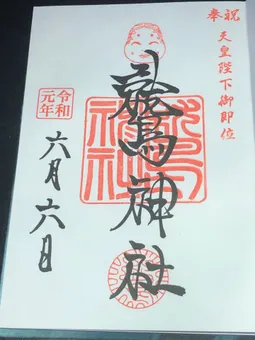 奉祝
天皇陛下御即位
鷲神社
令和
元年
六月六日